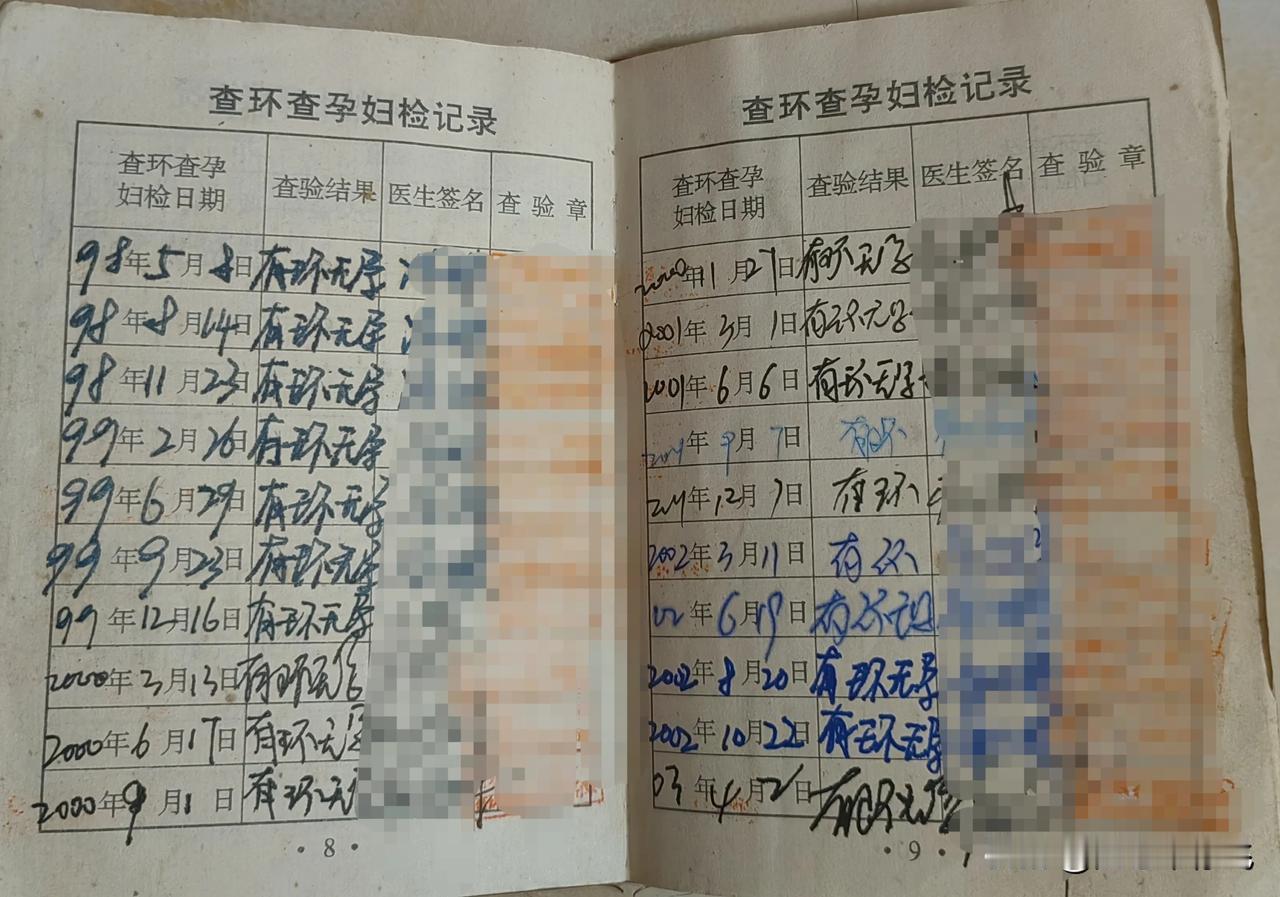 查环查孕妇检记录
查环查孕妇检日期 查验结果 医生签名 查验章
98年5月8日 有环无孕
98年8月14日 有环无孕
98年11月23日 有环无孕
99年2月26日 有环无孕
99年6月29日 有环无孕
99年9月23日 有环无孕
99年12月16日 有环无孕
2000年3月13日 有环无孕
2000年6月17日 有环无孕
2000年9月1日 有环无
·8·
查环查孕妇检记录
查环查孕妇检日期 查验结果 医生签名 查验章
年1月27日 有环无孕
2001年3月1日 有环无孕
2001年6月6日 有环无孕
2001年9月7日 有环
2001年12月7日 有环
2002年3月11日 有环
02年6月19日 有环无孕
2002年8月20日 有环无孕
2002年10月22日 有环无孕
03年4月2日 有环无孕
·9·